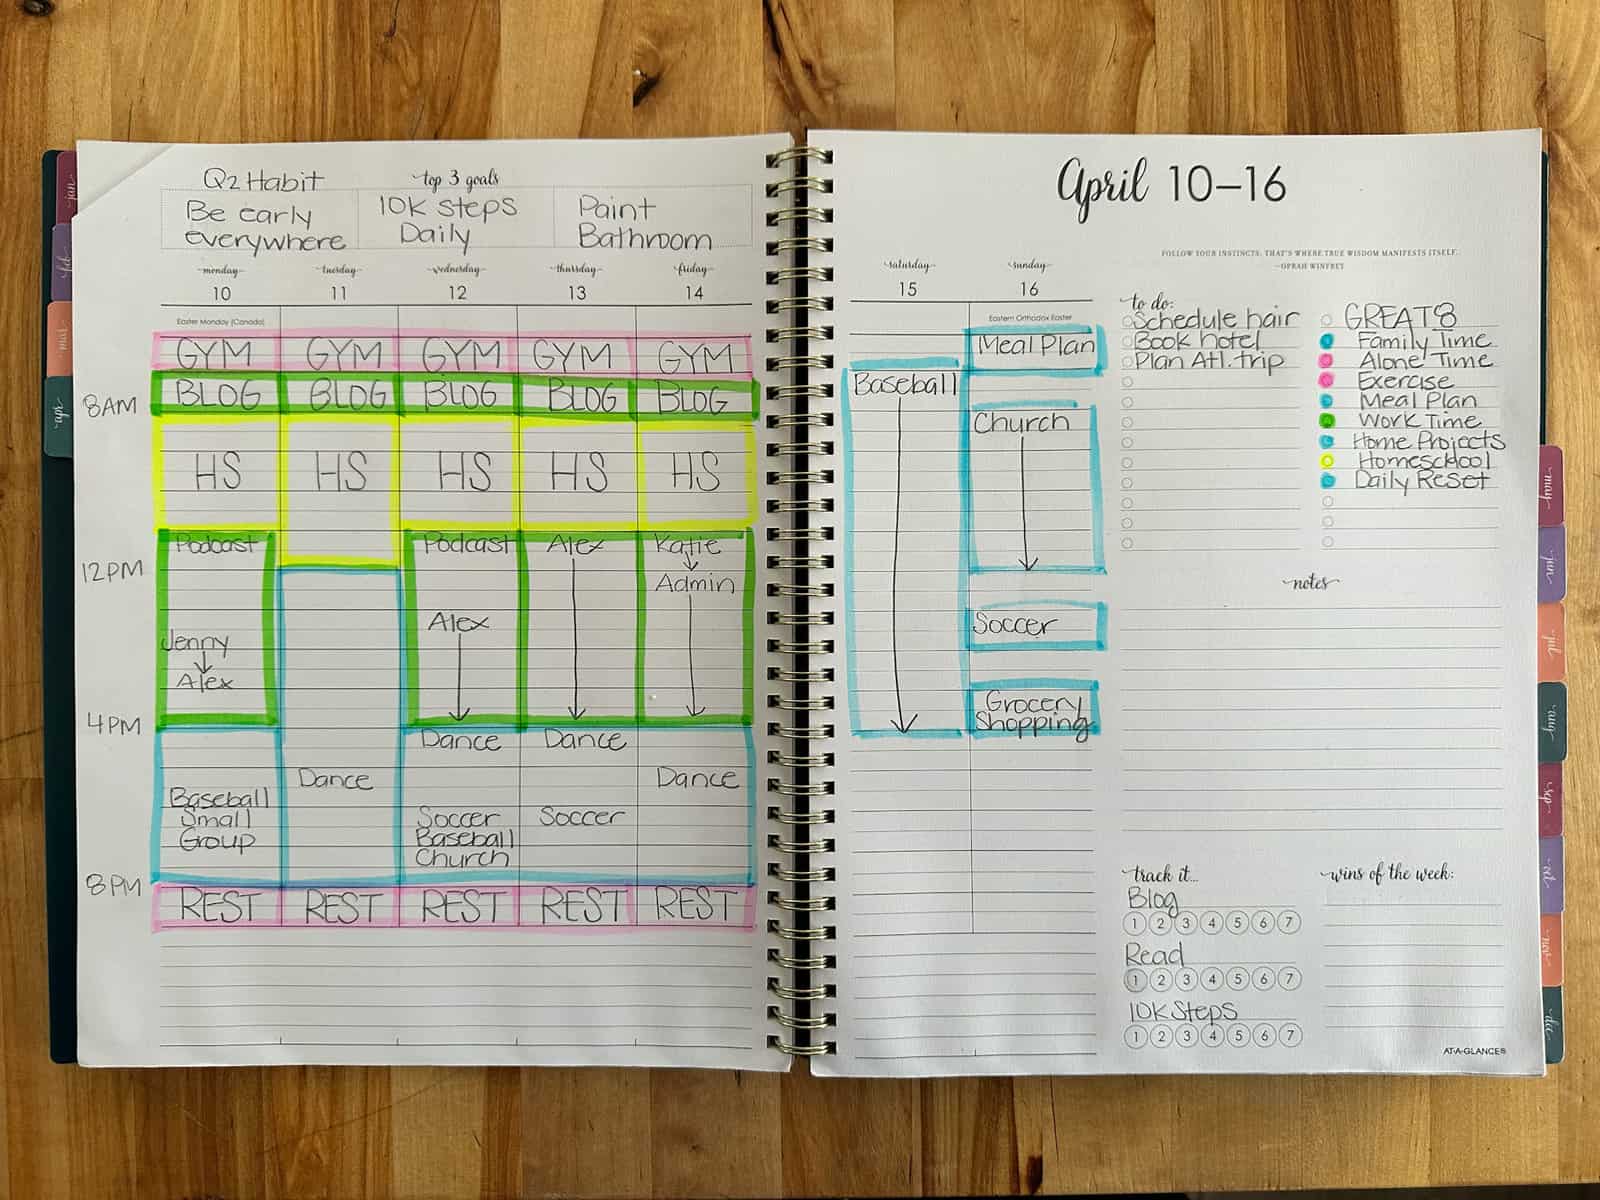 Q2 Habit
top 3 goals
Be early
everywhere
10K steps
Daily
Paint
Bathroom
monday
tuesday
wednesday
thursday
friday
10
11
12
13
14
Easter Monday (Canada)
GYM GYM GYM GYM GYM
BLOG BLOG BLOG BLOG BLOG
8AM
HS HS HS HS HS
Podcast
Podcast
Alex
Katie
12PM
Admin
Jenny
Alex
Alex
4PM
Dance
Dance
Dance
Dance
Baseball
Small
Group
Soccer
Baseball
Church
Soccer
8PM
REST REST REST REST REST
jan
feb
mar
apr
April 10–16
FOLLOW YOUR INSTINCTS. THAT'S WHERE TRUE WISDOM MANIFESTS ITSELF.
—OPRAH WINFREY
saturday
sunday
15
16
Eastern Orthodox Easter
Meal Plan
Baseball
Church
Soccer
Grocery
Shopping
to do:
Schedule hair
Book hotel
Plan Atl. trip
GREAT 8
Family Time
Alone Time
Exercise
Meal Plan
Work Time
Home Projects
Homeschool
Daily Reset
notes
track it...
Blog
1 2 3 4 5 6 7
Read
1 2 3 4 5 6 7
10K Steps
1 2 3 4 5 6 7
wins of the week:
AT-A-GLANCE®
may
jun
jul
aug
sep
oct
nov
dec